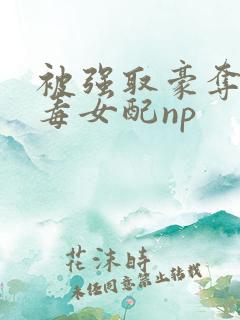 被强取豪夺
毒女配np
花沫時
未经同意禁止转载